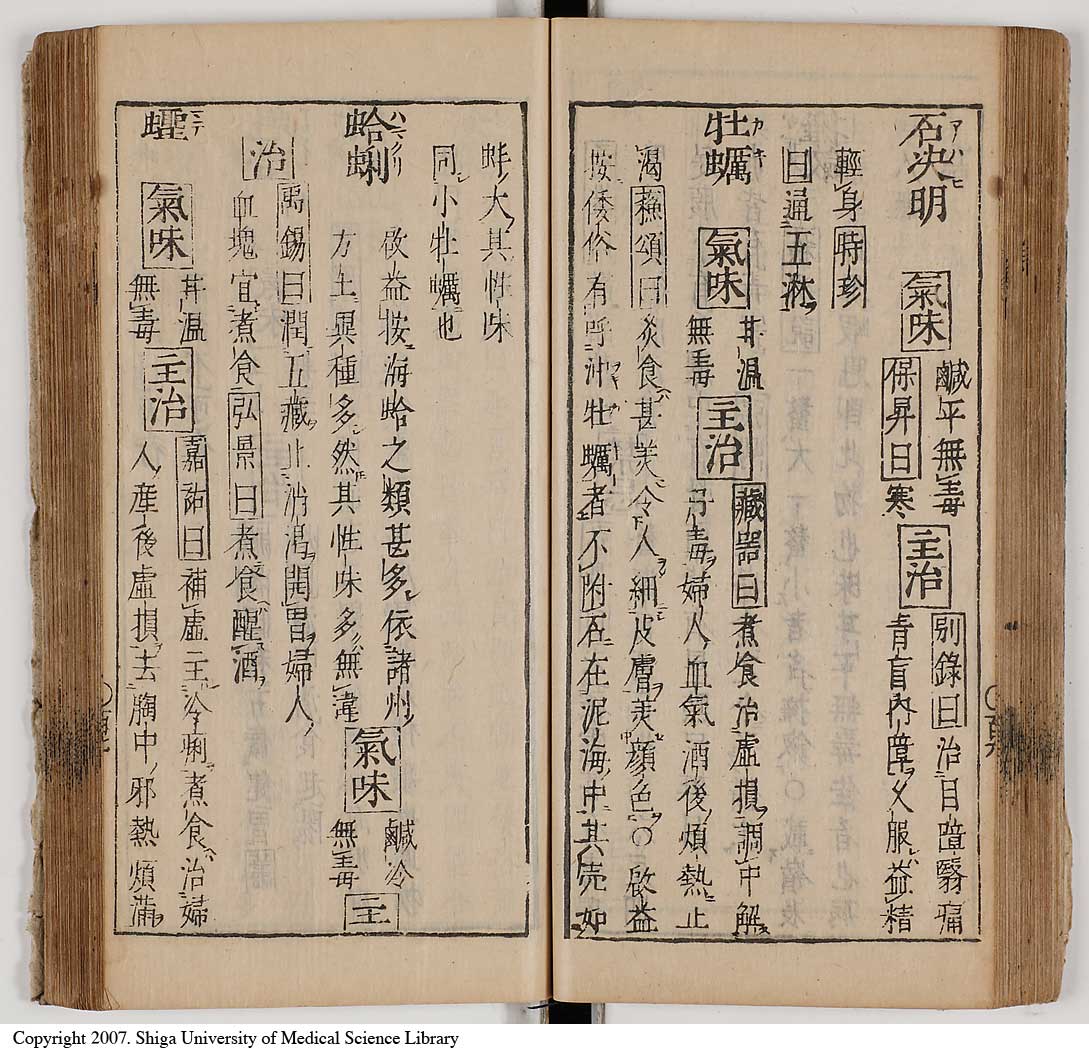 石決明 氣味 鹹平無毒
保昇曰寒 主治 別錄曰治目障翳痛
青盲內障久服益精
輕身時珍
曰通五淋
牡蠣 氣味 甘温
無毒 主治 藏器曰煮食治虛損調中解
丹毒婦人血氣酒後煩熱止
渴蘓頌曰炙食甚美令人細皮膚美顔色〇啟益
按倭俗有呼沖牡蠣者不附石在泥海中其壳如
蚌大其性味
同小牡蠣也
蛤蜊
啟益按海蛤之類甚多依諸州
方土異種多然其性味多無違 氣味 鹹冷
無毒 主
治
禹錫曰潤五藏止消渴開胃婦人
血塊宜煮食弘景曰煮食醒酒
蟶 氣味 甘温
無毒 主治 嘉祐曰補虛主冷痢煮食治婦
人產後虛損去胸中邪熱煩滿
Copyright 2007. Shiga University of Medical Science Library